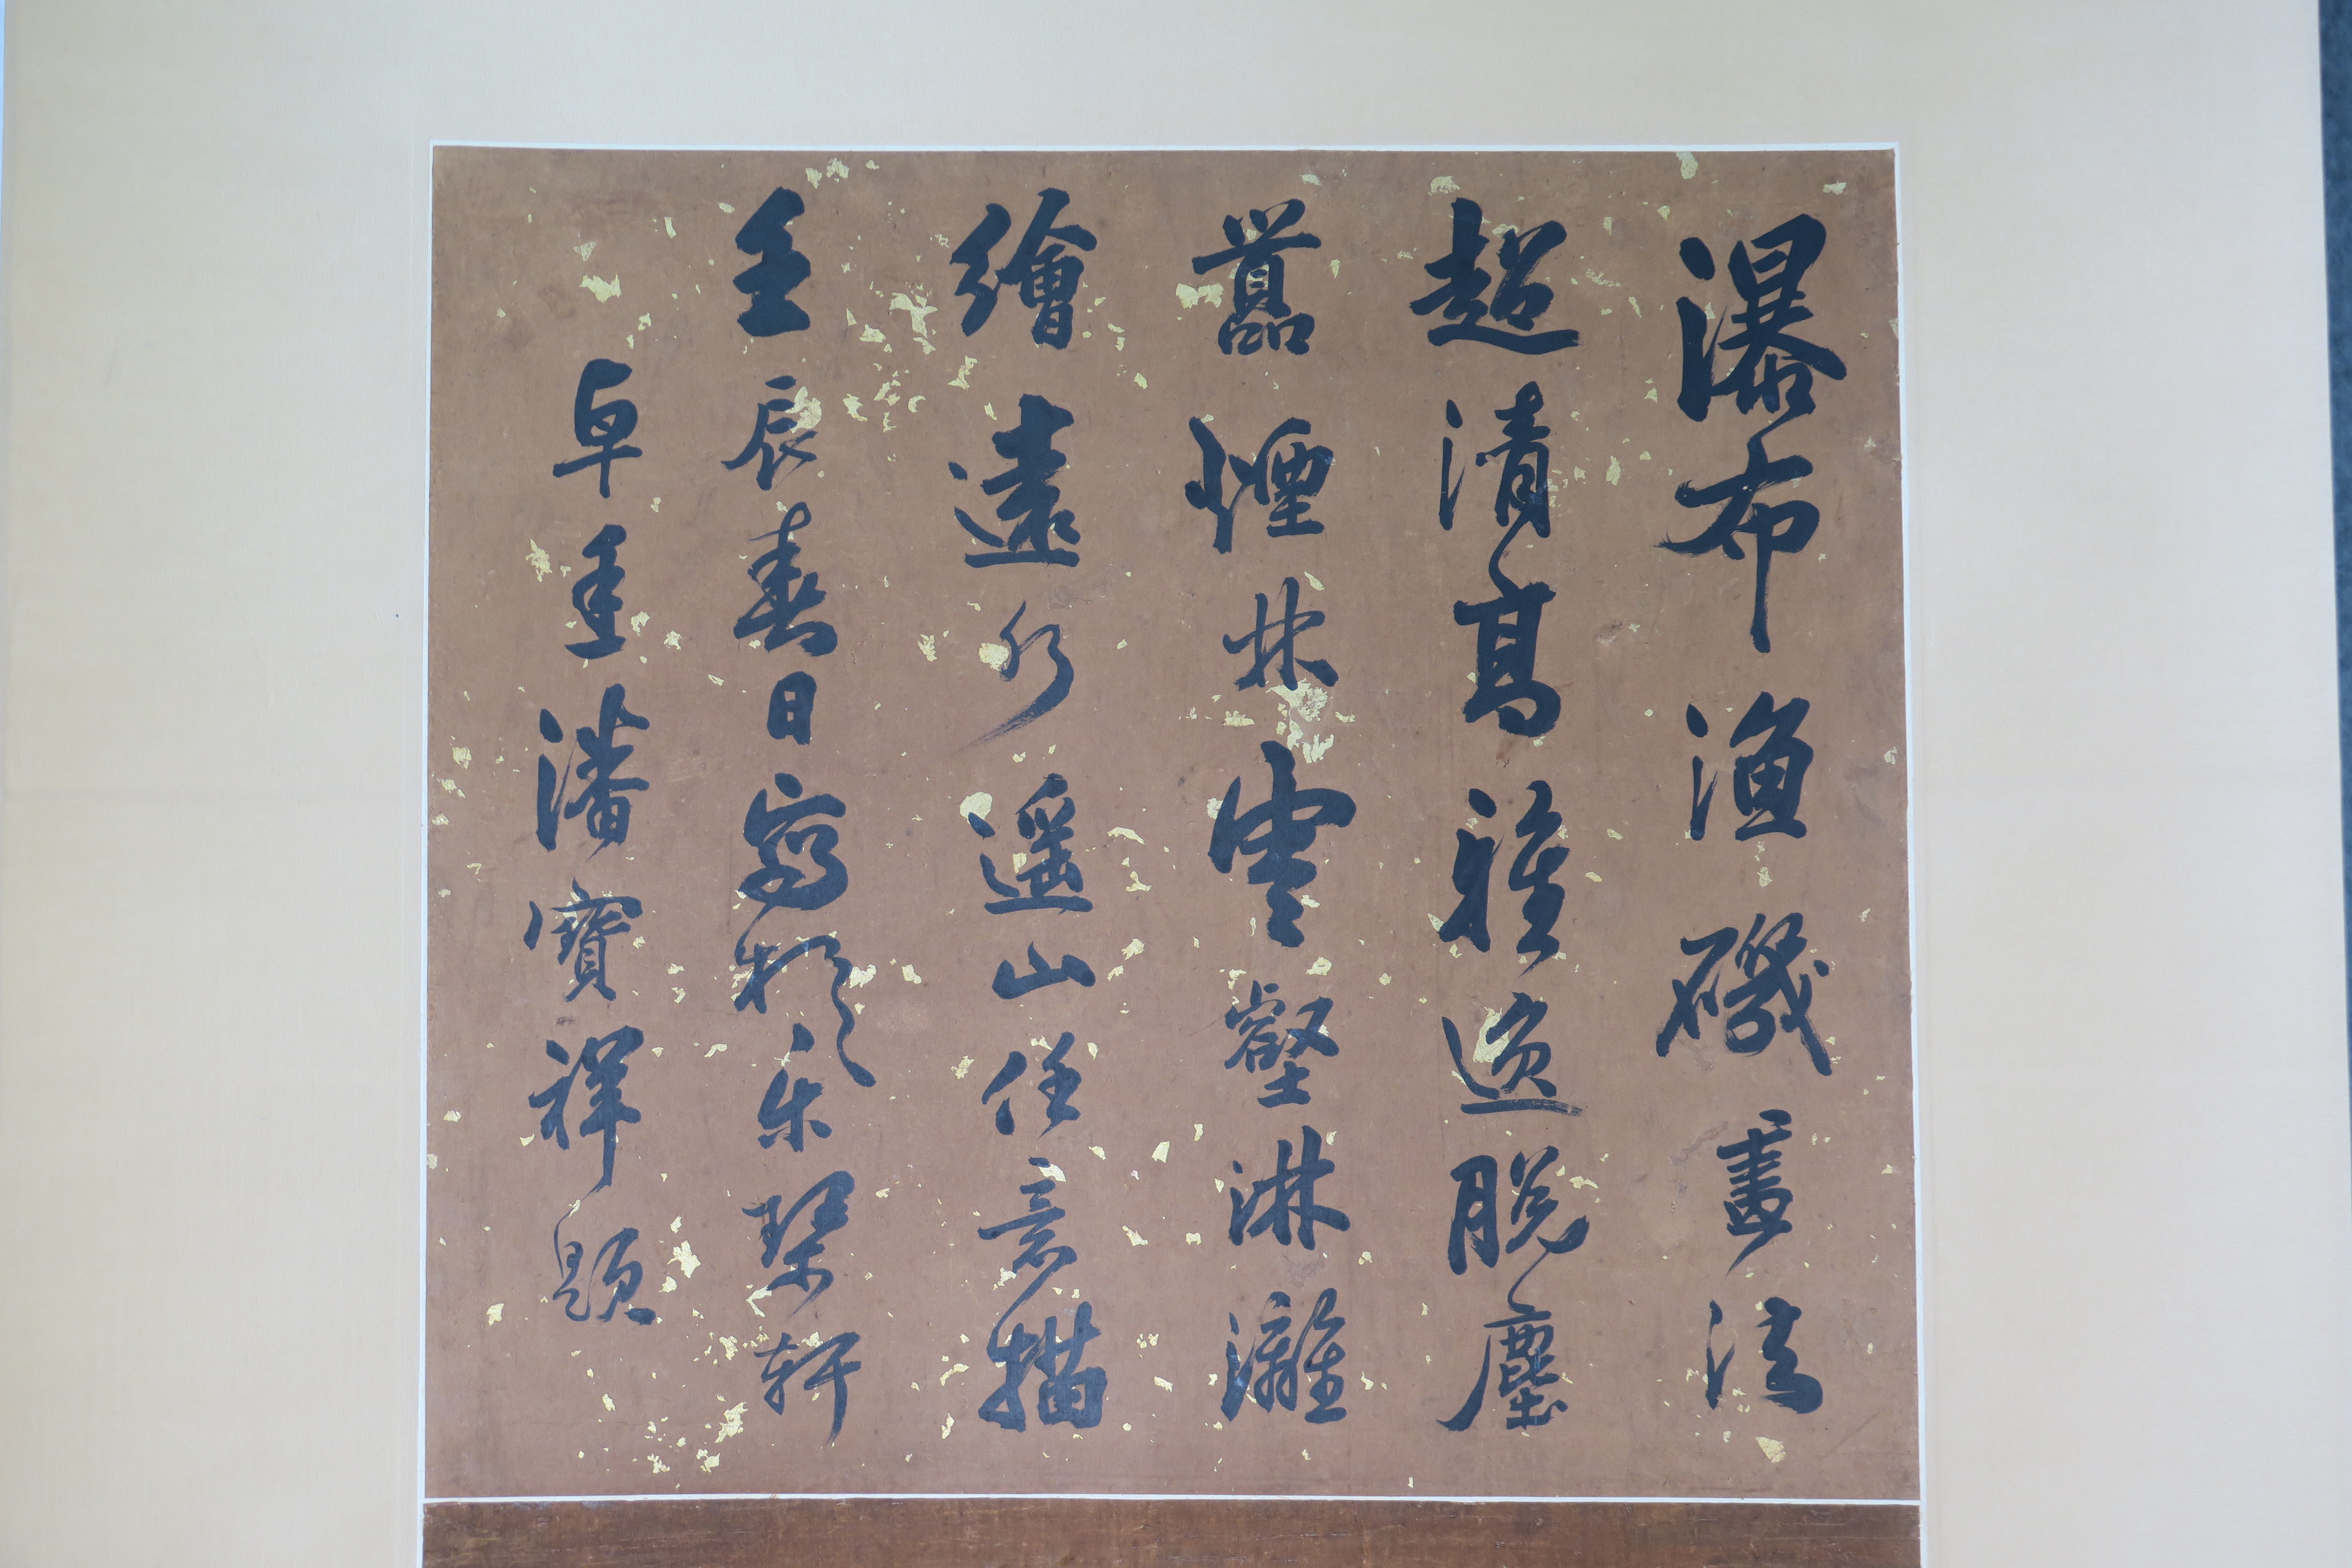 瀑布漁磯畫法
超清高雅逸脫塵
囂煙林雲壑淋灕
繪遠行遥山任意描
壬辰春日寫於乐琹軒
卓垂潘寶祥題